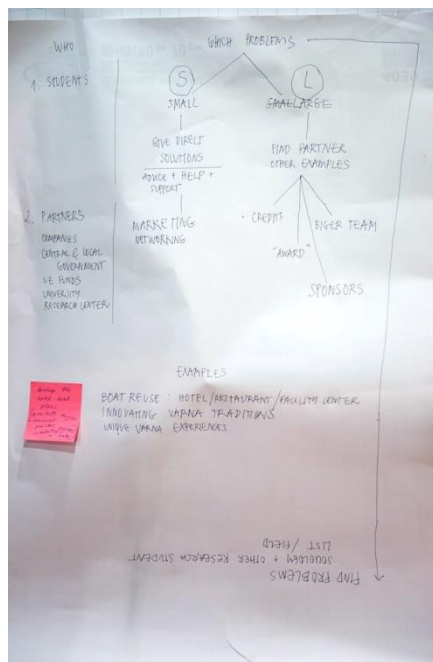 WHO
WHICH PROBLEMS
1. STUDENTS
S
L
SMALL
SMALLARGE
GIVE DIRECT
SOLUTIONS
ADVICE + HELP +
SUPPORT
FIND PARTNER
OTHER EXAMPLES
2. PARTNERS
COMPANIES
CENTRAL & LOCAL
GOVERNMENT
UNIVERSITY
RESEARCH CENTER
MARKETING
NETWORKING
CREDITS
"AWARD"
BIGER TEAM
SPONSORS
EXAMPLES
BOAT REUSE: HOTEL/RESTAURANT/FACILITY CENTER
INNOVATING VARNA TRADITIONS
UNIQUE VARNA EXPERIENCES
FIND PROBLEMS
SOCIOLOGY + OTHER RESEARCH STUDENT
LIST / FIELD